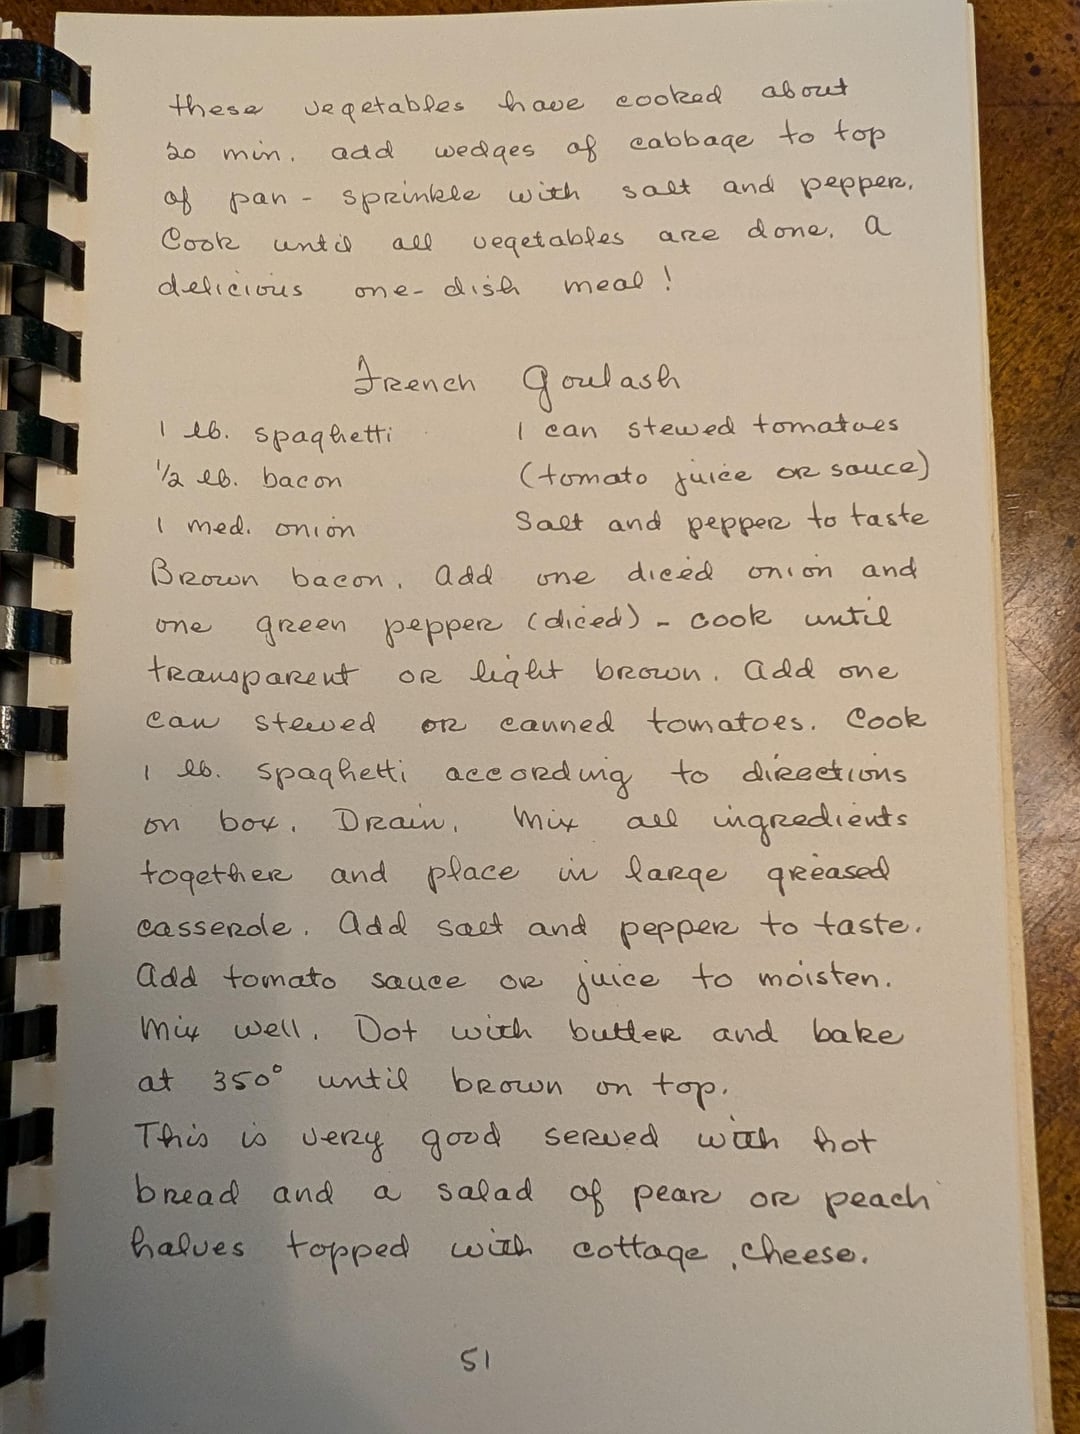 these vegetables have cooked about
20 min. add wedges of cabbage to top
of pan - sprinkle with salt and pepper.
Cook until all vegetables are done. A
delicious one-dish meal!
French Goulash
1 lb. spaghetti
1/2 lb. bacon
1 med. onion
1 can stewed tomatoes
(tomato juice or sauce)
Salt and pepper to taste
Brown bacon. Add one diced onion and
one green pepper (diced) - cook until
transparent or light brown. Add one
can stewed or canned tomatoes. Cook
1 lb. spaghetti according to directions
on box. Drain. Mix all ingredients
together and place in large greased
casserole. Add salt and pepper to taste.
Add tomato sauce or juice to moisten.
Mix well. Dot with butter and bake
at 350° until brown on top.
This is very good served with hot
bread and a salad of pear or peach
halves topped with cottage cheese.
51